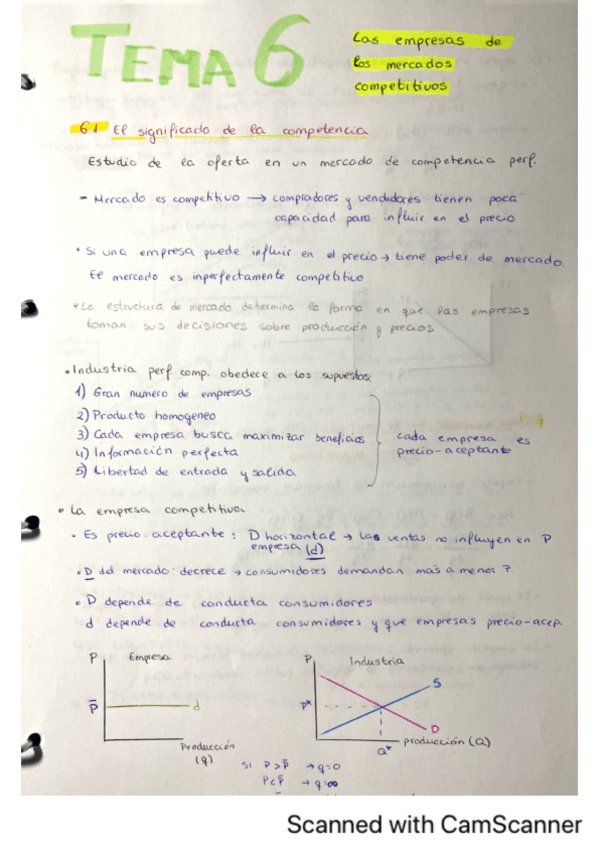 TEMA 6
Las empresas de
los mercados
competitivos
6.1 El significado de la competencia
Estudio de la oferta en un mercado de competencia perf.
- Mercado es competitivo → compradores y vendedores tienen poca
capacidad para influir en el precio
• Si una empresa puede influir en el precio → tiene poder de mercado.
El mercado es inperfectamente competitivo
* La estructura de mercado determina la forma en que las empresas
toman sus decisiones sobre producción y precios
• Industria perf comp. obedece a los supuestos:
1) Gran numero de empresas
2) Producto homogeneo
3) Cada empresa busca maximizar beneficios
4) Información perfecta
5) Libertad de entrada y salida
cada empresa es
precio-aceptante
• La empresa competitiva
• Es precio aceptante: D horizontal → las ventas no influyen en P
empresa (d)
• D del mercado: decrece → consumidores demandan mas a menor P.
• D depende de conducta consumidores
d depende de conducta consumidores y que empresas precio-acep.
P Empresa
P̄ d
Producción
(q)
P Industria
S
P*
D
Q* producción (Q)
Si P>P̄ → q=0
P<P̄ → q=∞
Scanned with CamScanner